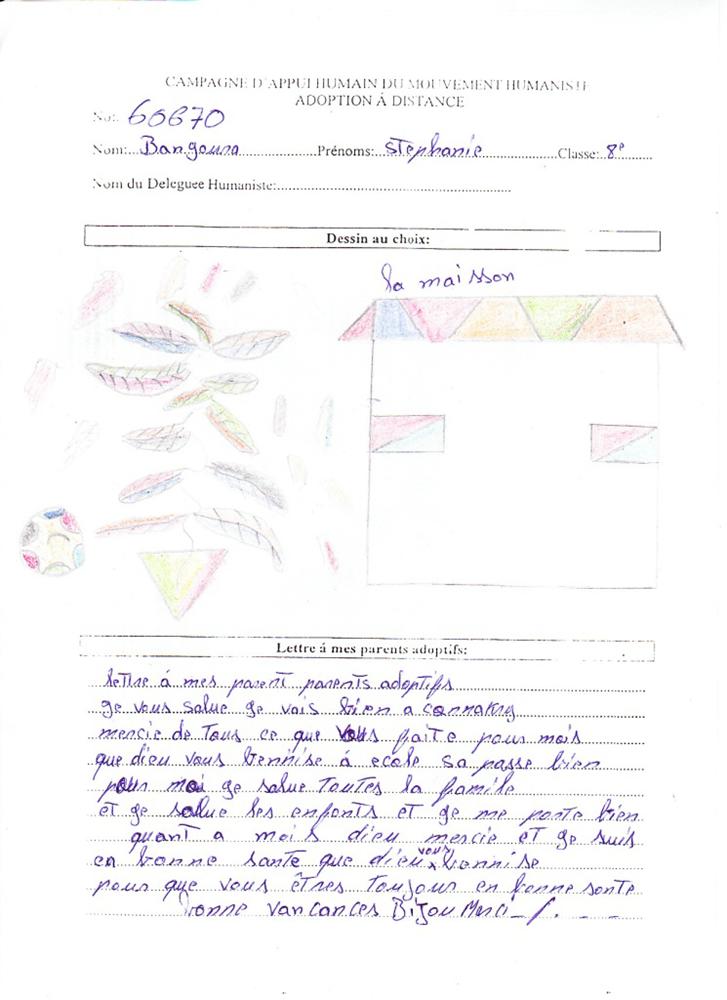 CAMPAGNE D'APPUI HUMAIN DU MOUVEMENT HUMANISTE
ADOPTION Á DISTANCE
No:. 60670
Nom:...Bangoura...Prénoms:..Stephanie...Classe:.8e...
Nom du Deleguee Humaniste:...
Dessin au choix:
la maisson
Lettre á mes parents adoptifs:
lettre á mes parent parents adoptifs
ge vous salue ge vais bien a connakry
mercie de tous ce que vous faite pour mois
que dieu vous bennise á ecole sa passe bien
pour moi ge salue toutes la famile
et ge salue les enfonts et ge me porte bien
quant a mois dieu mercie et ge suis
en bonne sante que dieu vous bennise
pour que vous êtres toujour en bonne sonte
bonne vancances Bijou Merci